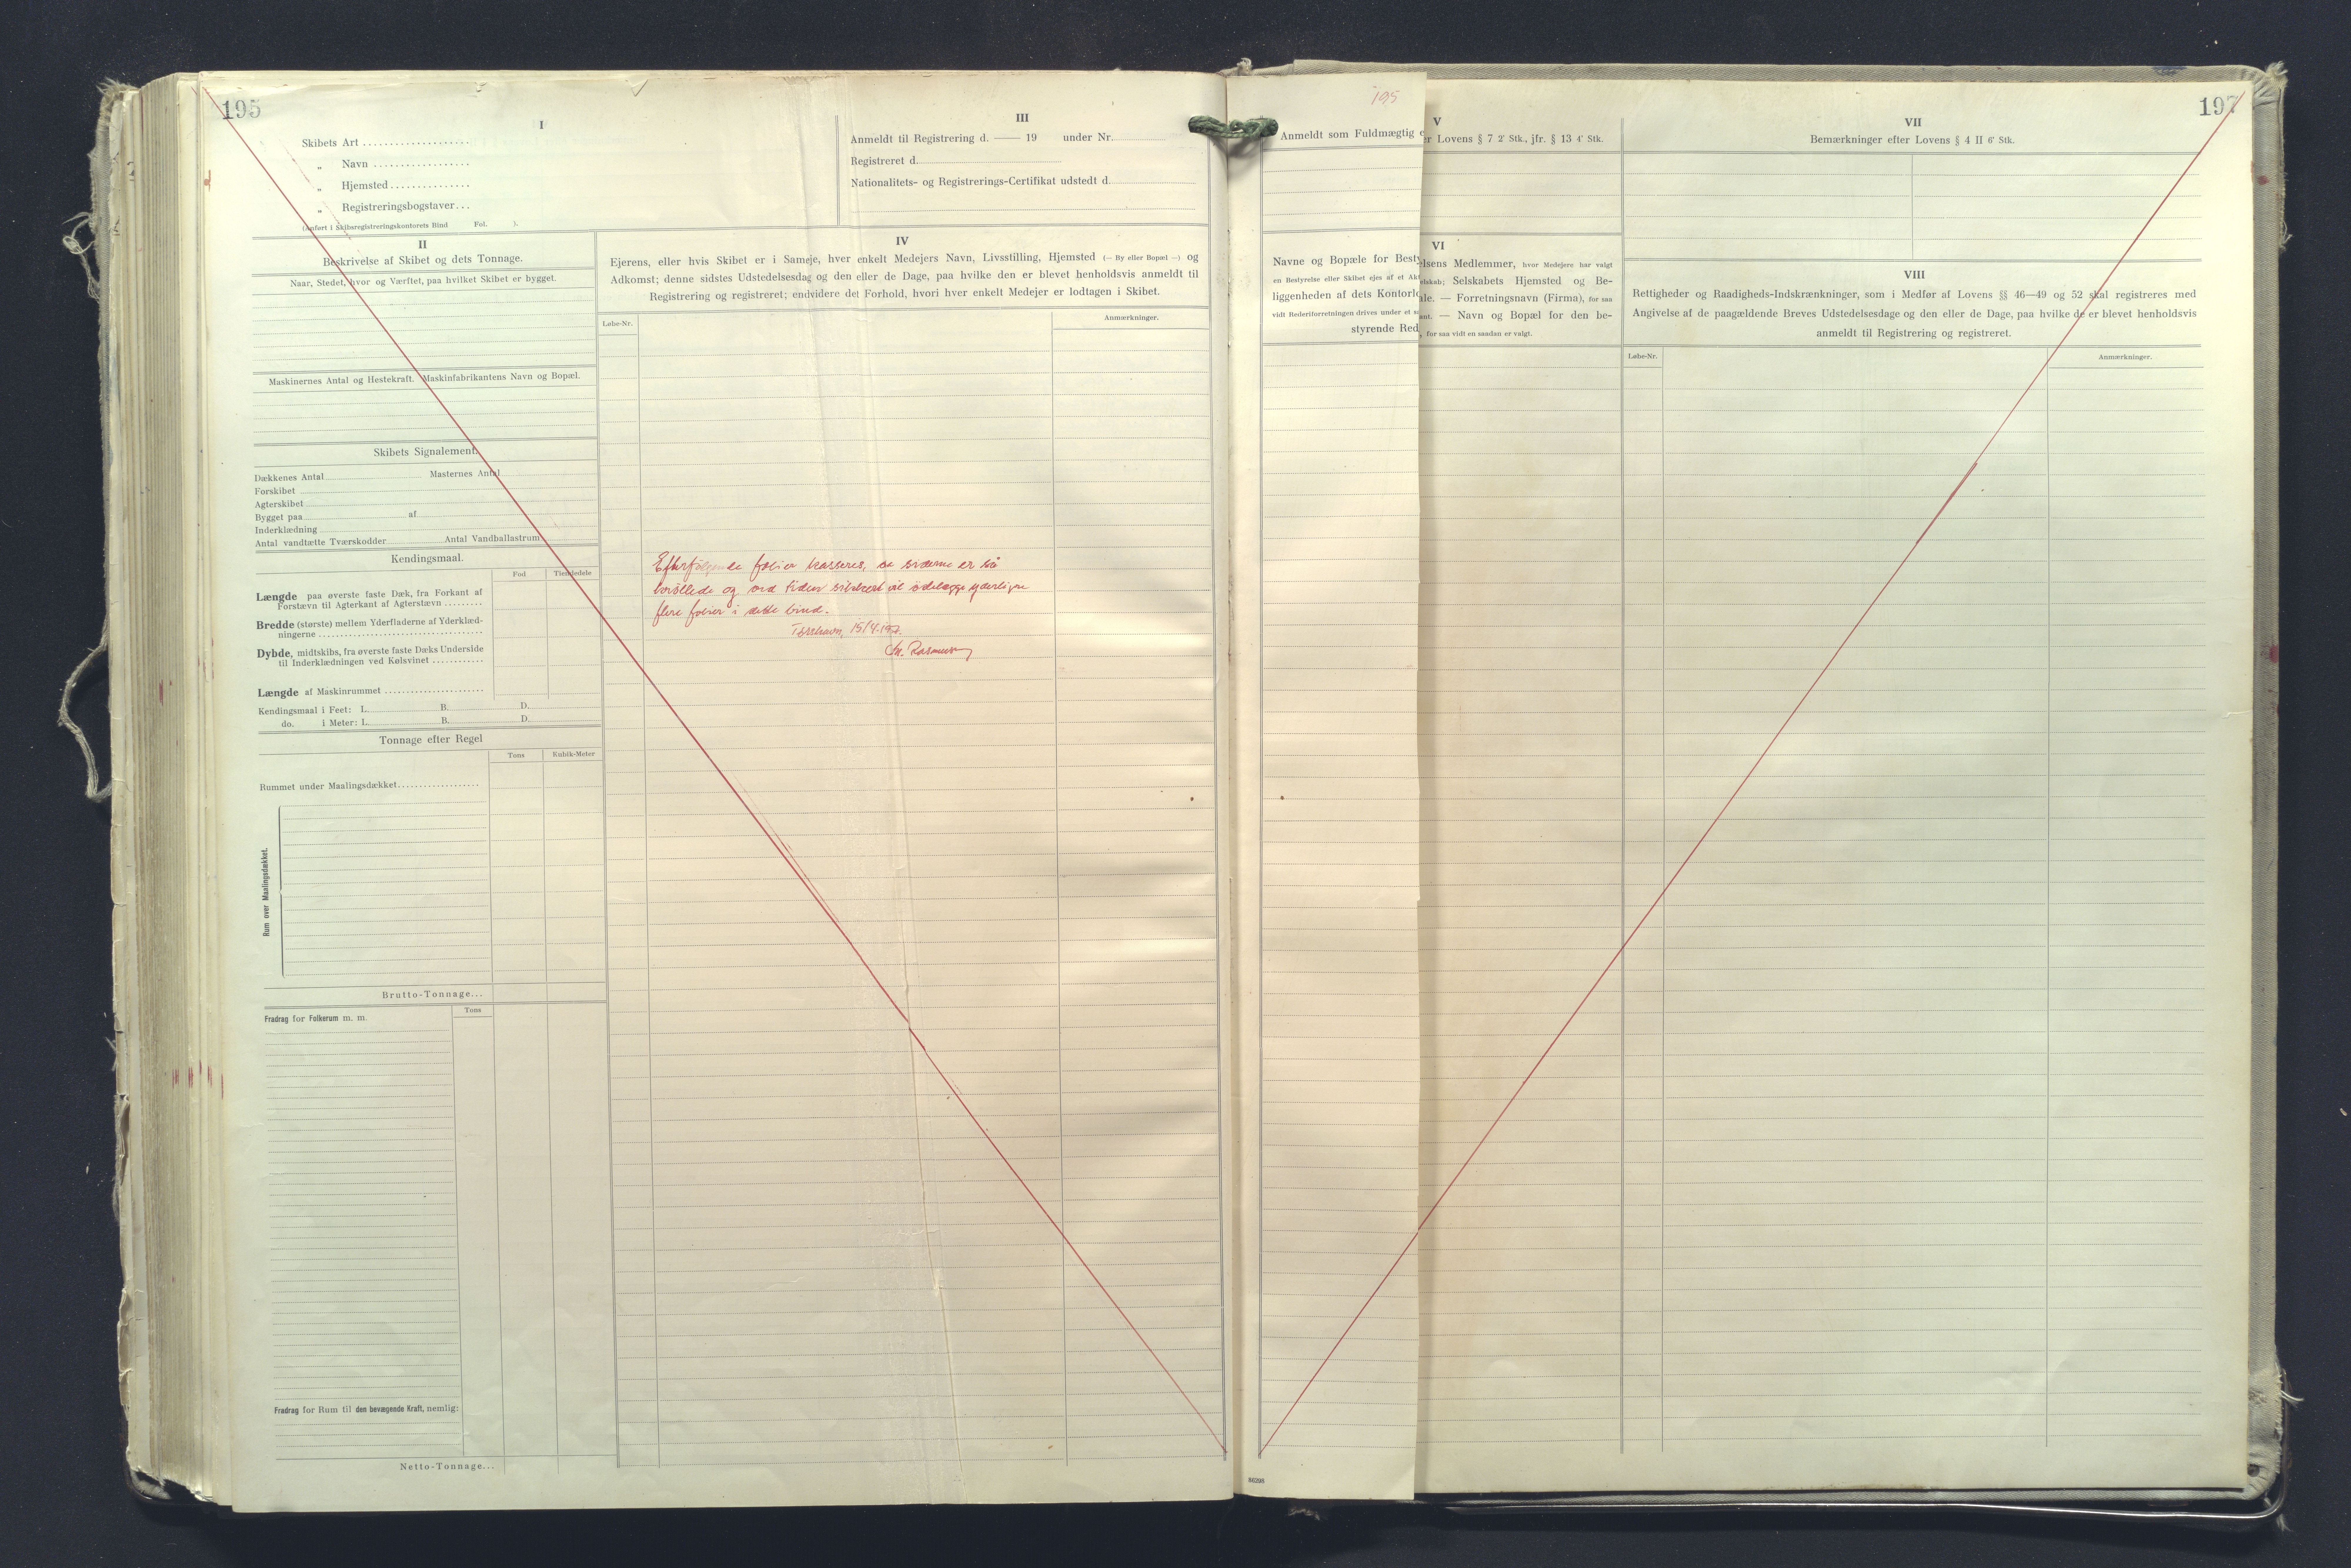 195
I
Skibets Art
„ Navn
„ Hjemsted
„ Registreringsbogstaver...
(Anført i Skibsregistreringskontorets Bind Fol. ).
III
Anmeldt til Registrering d. —— 19 under Nr.
Registreret d.
Nationalitets- og Registrerings-Certifikat udstedt d.
II
Beskrivelse af Skibet og dets Tonnage.
Naar, Stedet, hvor og Værftet, paa hvilket Skibet er bygget.
Maskinernes Antal og Hestekraft. Maskinfabrikantens Navn og Bopæl.
Skibets Signalement.
Dækkenes Antal Masternes Antal
Forskibet
Agterskibet
Bygget paa af
Inderklædning
Antal vandtætte Tværskodder Antal Vandballastrum
Kendingsmaal.
Fod Tiendedele
Længde paa øverste faste Dæk, fra Forkant af
Forstævn til Agterkant af Agterstævn
Bredde (største) mellem Yderfladerne af Yderklæd-
ningerne
Dybde, midtskibs, fra øverste faste Dæks Underside
til Inderklædningen ved Kølsvinet
Længde af Maskinrummet
Kendingsmaal i Feet: L. B. D.
do. i Meter: L. B. D.
Tonnage efter Regel
Tons Kubik-Meter
Rummet under Maalingsdækket
Rum over Maalingsdækket.
Brutto-Tonnage...
Fradrag for Folkerum m. m.
Tons
Fradrag for Rum til den bevægende Kraft, nemlig:
Netto-Tonnage...
IV
Ejerens, eller hvis Skibet er i Sameje, hver enkelt Medejers Navn, Livsstilling, Hjemsted (— By eller Bopæl —) og
Adkomst; denne sidstes Udstedelsesdag og den eller de Dage, paa hvilke den er blevet henholdsvis anmeldt til
Registrering og registreret; endvidere det Forhold, hvori hver enkelt Medejer er lodtagen i Skibet.
Løbe-Nr.
Anmærkninger.
Efterfølgende folier kasseres, da siderne er så
krøllede og ved tiden slitered vil ødelægge yderligere
flere folier i dette bind.
Tórshavn, 15/4.
Rasmussen
195
Anmeldt som Fuldmægtig e
Navne og Bopæle for Besty
en Bestyrelse eller Skibet ejes af et Akt
liggenheden af dets Kontorlo
vidt Rederiforretningen drives under et s
styrende Red
86298
V
er Lovens § 7 2' Stk., jfr. § 13 4' Stk.
VI
elsens Medlemmer, hvor Medejere har valgt
elskab; Selskabets Hjemsted og Be-
ale. — Forretningsnavn (Firma), for saa
ant. — Navn og Bopæl for den be-
, for saa vidt en saadan er valgt.
197
VII
Bemærkninger efter Lovens § 4 II 6' Stk.
VIII
Rettigheder og Raadigheds-Indskrænkninger, som i Medfør af Lovens §§ 46—49 og 52 skal registreres med
Angivelse af de paagældende Breves Udstedelsesdage og den eller de Dage, paa hvilke de er blevet henholdsvis
anmeldt til Registrering og registreret.
Løbe-Nr.
Anmærkninger.